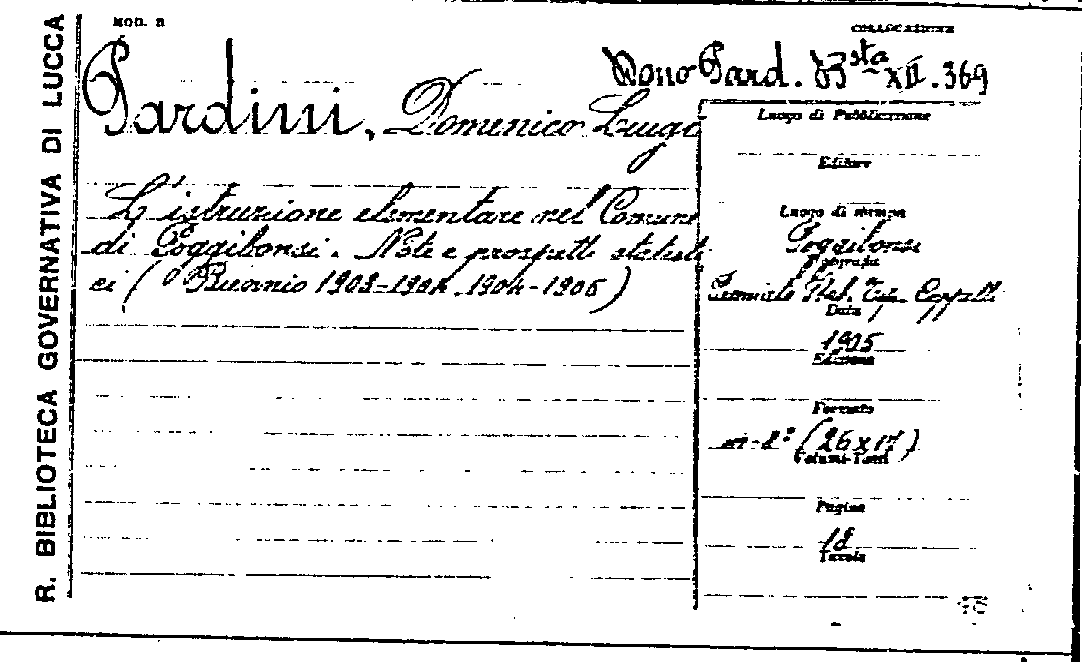 R. BIBLIOTECA GOVERNATIVA DI LUCCA
MOD. B
COLLOCAZIONE
Dono Pard. Bsta XII. 369
Pardini, Domenico Luigi
L'istruzione elementare nel Comune
di Poggibonsi. Note e prospetti statisti
ci (Biennio 1903-1904. 1904-1905)
Luogo di Pubblicazione
Editore
Luogo di stampa
Poggibonsi
Tipografia
Stab. Tip. Cappelli
Data
1905
Edizione
Formato
in-8° (26x17)
Volumi-Tomi
Pagine
18
Tavole